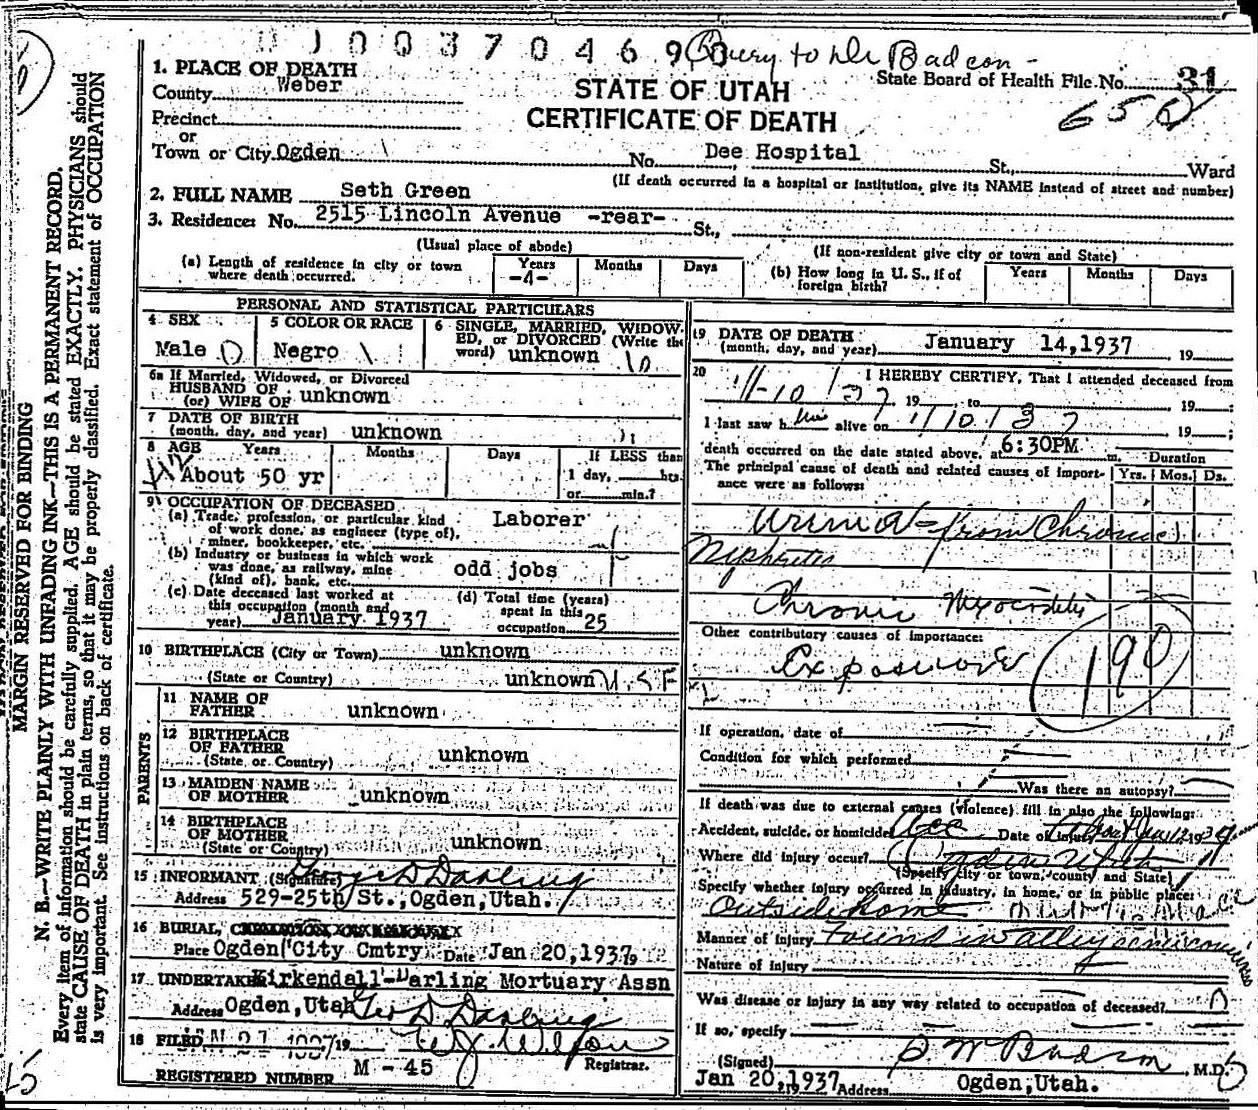 0 0 3 7 0 4 6 9 Query to Dr Badcon -
1. PLACE OF DEATH
County Weber
Precinct
or
Town or City Ogden
STATE OF UTAH
CERTIFICATE OF DEATH
State Board of Health File No. 31
No. Dee Hospital St., Ward
(If death occurred in a hospital or institution, give its NAME instead of street and number)
2. FULL NAME Seth Green
3. Residence: No. 2515 Lincoln Avenue -rear- St.,
(Usual place of abode) (If non-resident give city or town and State)
(a) Length of residence in city or town where death occurred. Years -4- Months Days
(b) How long in U. S., if of foreign birth? Years Months Days
PERSONAL AND STATISTICAL PARTICULARS
4 SEX Male
5 COLOR OR RACE Negro
6 SINGLE, MARRIED, WIDOWED, or DIVORCED (Write the word) unknown
6a If Married, Widowed, or Divorced
HUSBAND OF
(or) WIFE OF unknown
7 DATE OF BIRTH
(month, day, and year) unknown
8 AGE Years Months Days If LESS than
About 50 yr 1 day, hrs.
or min.?
9 OCCUPATION OF DECEASED
(a) Trade, profession, or particular kind of work done, as engineer (type of), miner, bookkeeper, etc. Laborer
(b) Industry or business in which work was done, as railway, mine (kind of), bank, etc. odd jobs
(c) Date deceased last worked at this occupation (month and year) January 1937
(d) Total time (years) spent in this occupation 25
10 BIRTHPLACE (City or Town) unknown
(State or Country) unknown
PARENTS
11 NAME OF FATHER unknown
12 BIRTHPLACE OF FATHER unknown
(State or Country)
13 MAIDEN NAME OF MOTHER unknown
14 BIRTHPLACE OF MOTHER unknown
(State or Country)
15 INFORMANT (Signature) George D Darling
Address 529-25th St., Ogden, Utah.
16 BURIAL,
Place Ogden City Cmtry Date Jan 20, 1937 19
17 UNDERTAKER Kirkendall-Darling Mortuary Assn
Address Ogden, Utah Geo D Darling
18 FILED JAN 27 1937 19
Registrar.
REGISTERED NUMBER M - 45
19 DATE OF DEATH
(month, day, and year) January 14, 1937 , 19
20 I HEREBY CERTIFY, That I attended deceased from
1/-10/37 19 , to 19 ;
I last saw him alive on 1/10/37 19 ;
death occurred on the date stated above, at 6:30PM m. Duration
The principal cause of death and related causes of importance were as follows: Yrs. Mos. Ds.
Uremia - from Chronic
Nephritis
Chronic Myocarditis
Other contributory causes of importance:
Exposure
190
If operation, date of
Condition for which performed
Was there an autopsy?
If death was due to external causes (violence) fill in also the following:
Accident, suicide, or homicide Acc Date of injury
Where did injury occur? Ogden Utah
(Specify city or town, county and State)
Specify whether injury occurred in industry, in home, or in public place:
Outside home
Manner of injury found in alley
Nature of injury
Was disease or injury in any way related to occupation of deceased?
If so, specify
(Signed) M.D.
Jan 20, 1937 Address Ogden, Utah.
MARGIN RESERVED FOR BINDING
N. B.—WRITE PLAINLY WITH UNFADING INK—THIS IS A PERMANENT RECORD.
Every item of information should be carefully supplied. AGE should be stated EXACTLY. PHYSICIANS should
state CAUSE OF DEATH in plain terms, so that it may be properly classified. Exact statement of OCCUPATION
is very important. See instructions on back of certificate.